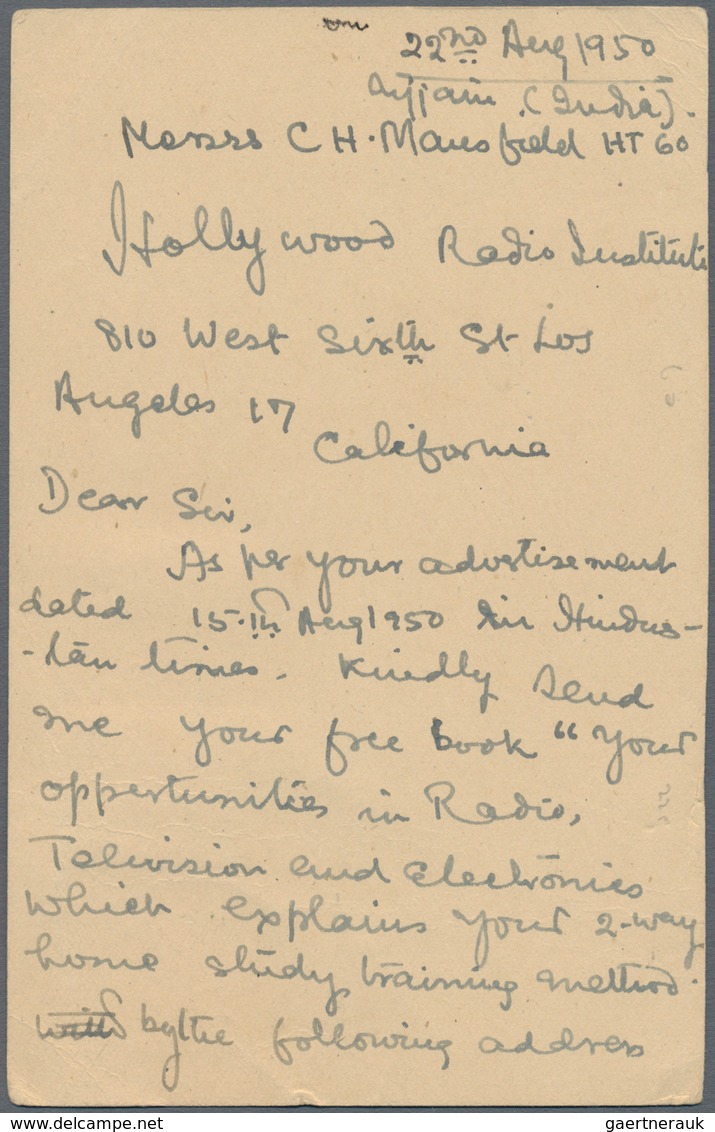 22nd Aug 1950
Ujjain (India).
Messrs C H. Mansfield HT 60
Hollywood Radio Institute
810 West Sixth St Los
Angeles 17
California
Dear Sir,
As per your advertisement
dated 15.th Aug 1950 in Hindus-
-tan times. Kindly send
me your free book "Your
opportunities in Radio,
Television and Electronics
which explains your 2-way
home study training method.
by the following address
gaertnerauk / delcampe.net